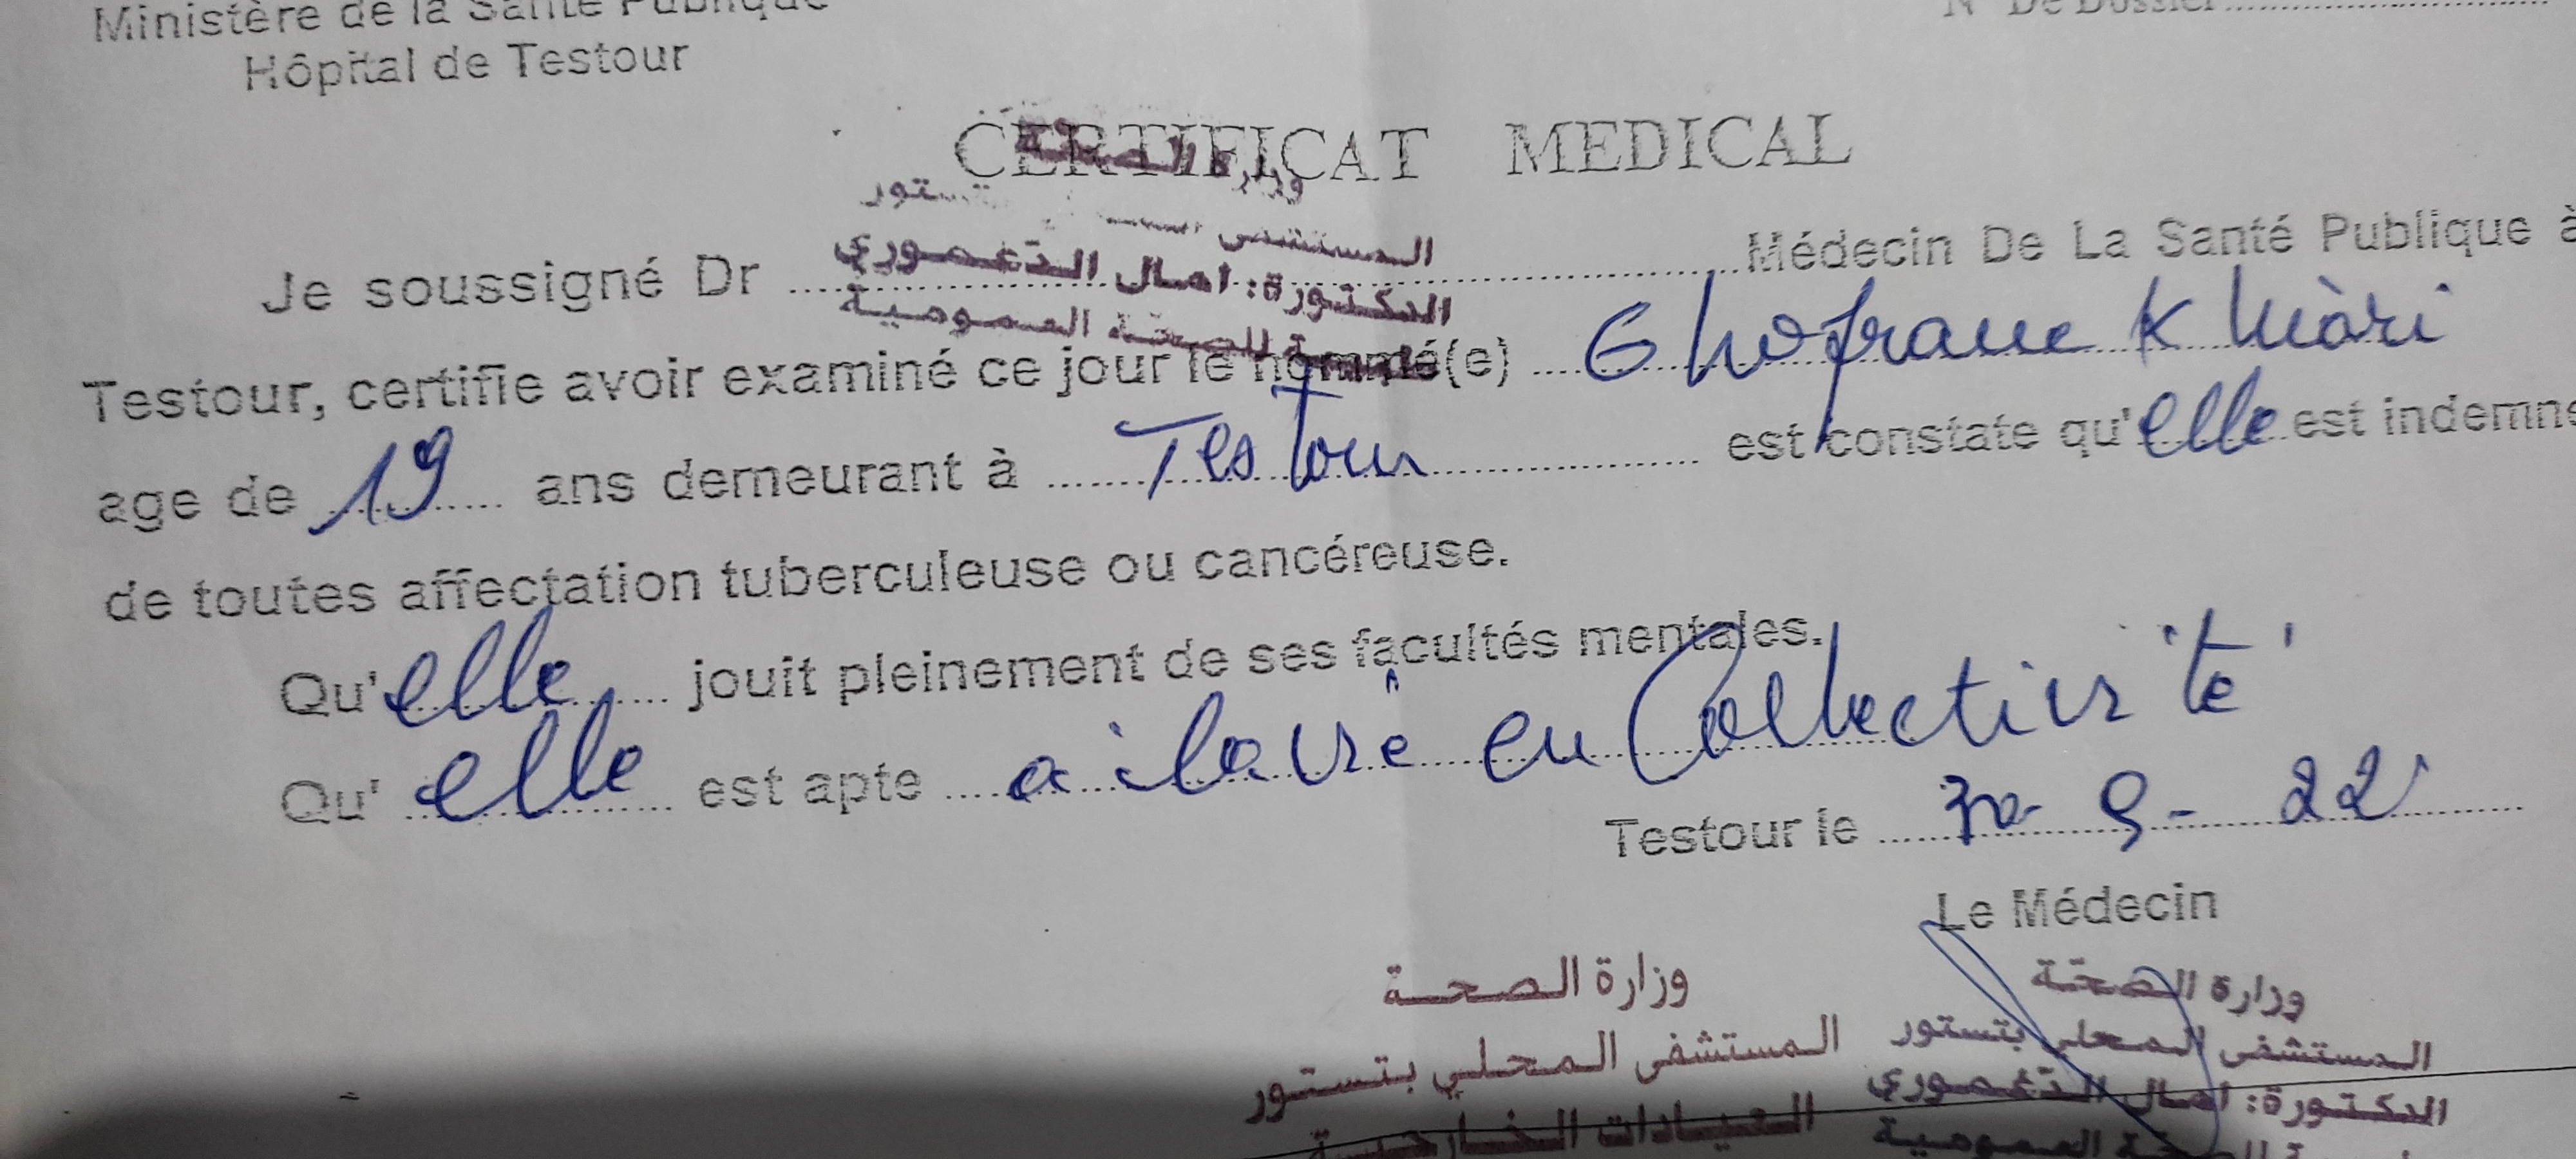 Ministère de la Santé Publique
N° De Dossier
Hôpital de Testour
CERTIFICAT MEDICAL
المستشفى
الدكتورة: امال الدغموري
للصحة العمومية
Je soussigné Dr Médecin De La Santé Publique à
Testour, certifie avoir examiné ce jour le nommé(e) Ghofrane Khiari
age de 19 ans demeurant à Testour est constate qu'elle est indemne
de toutes affectation tuberculeuse ou cancéreuse.
Qu'elle jouit pleinement de ses facultés mentales.
Qu' elle est apte à la vie en Collectivité
Testour le 30 - 9 - 22
Le Médecin
وزارة الصحة
المستشفى المحلي بتستور
العيادات الخارجية
وزارة الصحة
المستشفى المحلي بتستور
الدكتورة: امال الدغموري
الصحة العمومية